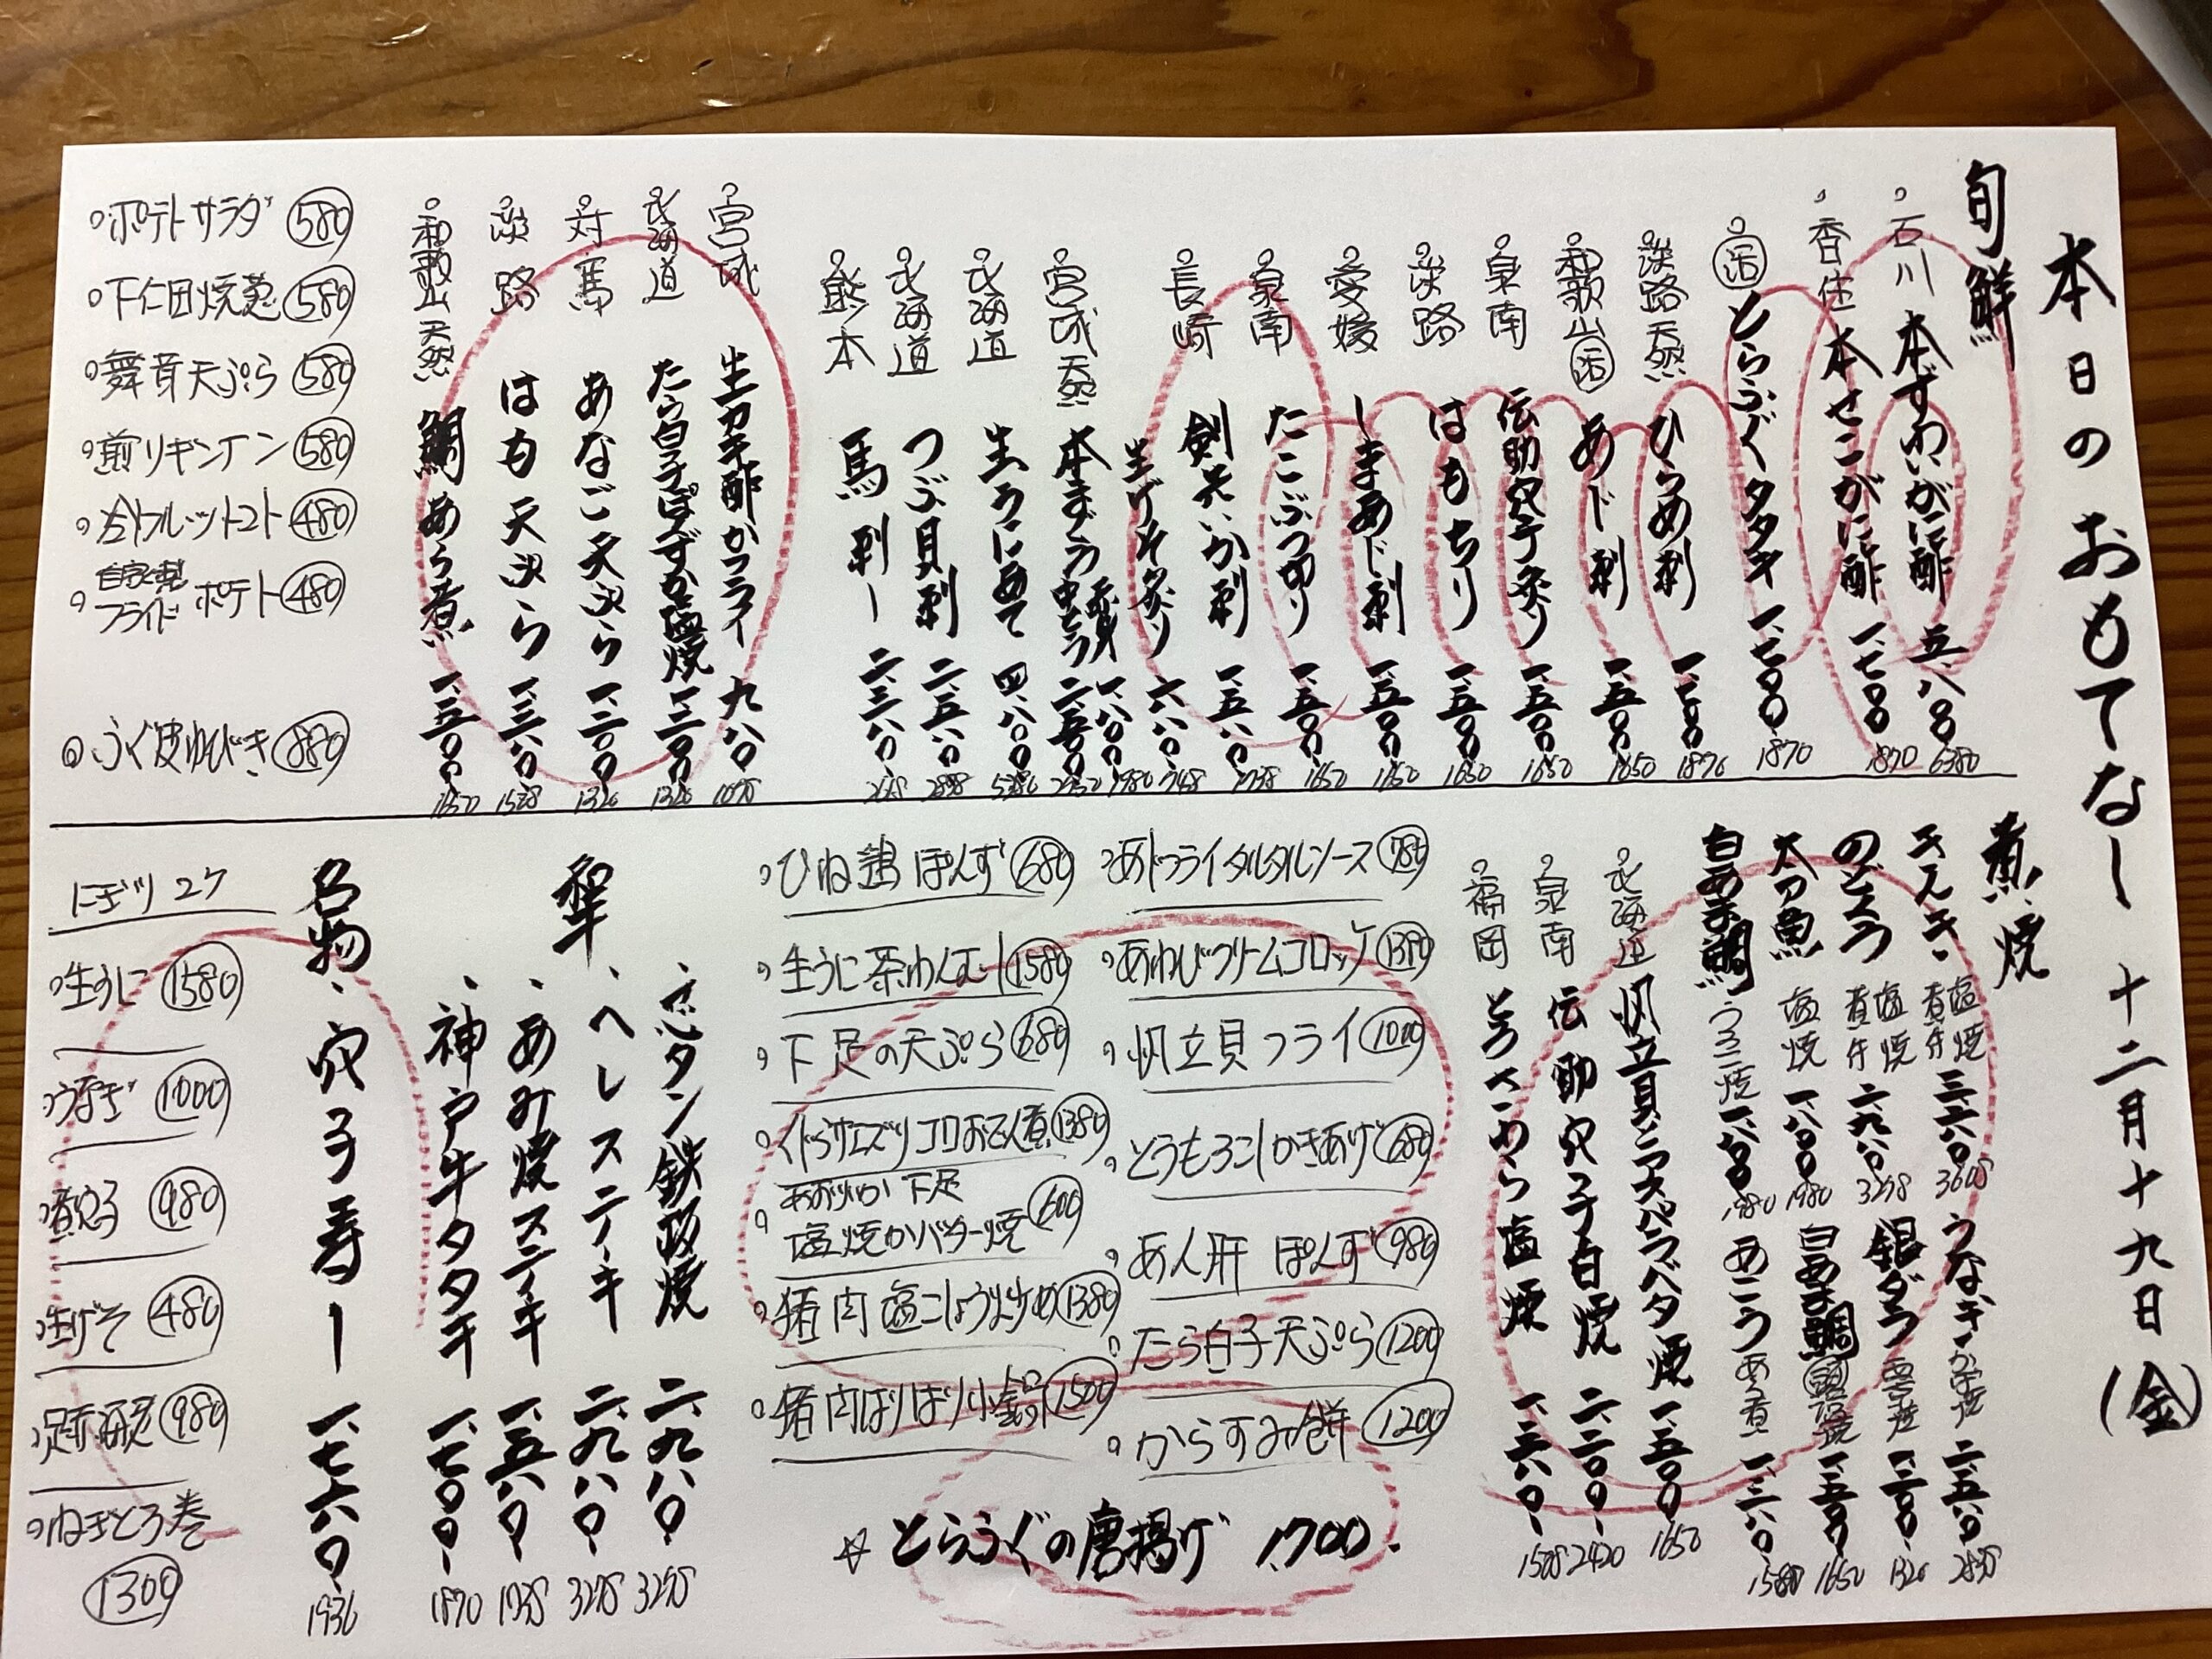 本日のおもてなし 十二月十九日(金)
旬鮮
石川 本ずわいがに酢 五、八〇〇 6380
香住 本せこがに酢 一、七〇〇 1870
活 とらふぐタタキ 一、七〇〇 1870
淡路天然 ひらめ刺 一、七〇〇 1870
和歌山 活 あじ刺 一、五〇〇 1650
泉南 伝助穴子炙り 一、五〇〇 1650
淡路 はもちり 一、五〇〇 1650
愛媛 しまあじ刺 一、五〇〇 1650
泉南 たこぶつ切り 一、五〇〇 1650
長崎 剣先いか刺 一、五八〇 1738
生げそ炙り 六八〇 748
宮城天然 本まぐろ 赤身 一、八〇〇 1980
中とろ 二、五〇〇 2750
北海道 生うにあて 四、八〇〇 5280
北海道 つぶ貝刺 二、五八〇
熊本 馬刺し 二、三八〇
宮城 生カキ酢かフライ 九八〇 1078
北海道 たら白子ぽんずか塩焼 一、二〇〇 1320
対馬 あなご天ぷら 一、二〇〇 1320
淡路 はも天ぷら 一、三八〇 1518
和歌山天然 鯛あら煮 一、五〇〇 1650
ポテトサラダ 580
下仁田焼葱 580
舞茸天ぷら 580
煎りギンナン 580
フルーツトマト 480
自家製 フライドポテト 480
ふぐ皮ゆびき 880
煮・焼
きんき 塩焼 煮付 三、二八〇 3608
のどぐろ 塩焼 煮付 二、九八〇 3278
太刀魚 塩焼 一、八〇〇 1980
白あま鯛 うろこ焼 一、八〇〇 1980
うなぎ 二、五八〇 2838
銀ダラ 西京焼 一、二〇〇 1320
白あま鯛 一、五〇〇 1650
あこう あら煮 一、三八〇
北海道 帆立貝アスパラバター焼 一、五〇〇 1650
泉南 伝助穴子白焼 二、二〇〇 2420
福岡 とろさわら塩焼 一、三八〇 1518
あじフライタルタルソース 780
あわびクリームコロッケ 1380
帆立貝フライ 1000
とうもろこしかきあげ 680
あん肝 ぽんず 980
たら白子天ぷら 1200
からすみ餅 1200
ひね鶏 ぽんず 680
生うに茶わんむし 1580
下足の天ぷら 680
くじらサエズリコロおでん煮 1380
あおりいか下足 塩焼かバター焼 600
猪肉塩こしょう炒め 1380
猪肉はりはり小鍋 1500
☆とらふぐの唐揚げ 1,700.
和牛
・芯タン鉄板焼 二、九八〇 3278
・ヘレステーキ 二、九八〇 3278
・あみ焼ステーキ 一、五八〇 1738
・神戸牛タタキ 一、七〇〇 1870
名物、穴子寿し 一、七六〇 1936
にぎり 2ケ
生うに 1580
うなぎ 1000
煮穴子 980
生げそ 480
980
ねぎとろ巻 1300